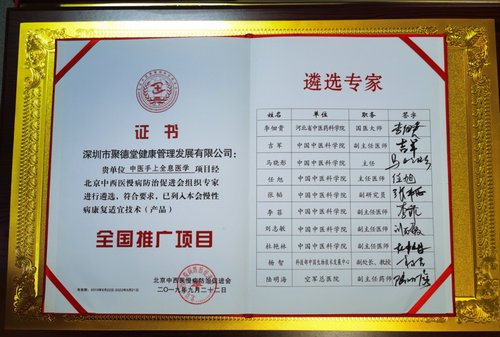 证书
深圳市聚德堂健康管理发展有限公司：
贵单位 中医手上全息医学 项目经
北京中西医慢病防治促进会组织专家
进行遴选，符合要求，已列入本会慢性
病康复适宜技术（产品）
全国推广项目
北京中西医慢病防治促进会
二〇一九年九月二十二日
遴选专家
姓名 单位 职务 签字
李佃贵 河北省中医药科学院 国医大师 李佃贵
吉军 中国中医科学院 副主任医师 吉军
马晓彤 中国中医科学院 主任
任旭 中国中医科学院 副主任医师 任旭
张韬 中国中医科学院 副研究员
李菲 中国中医科学院 副主任医师
刘志敏 中国中医科学院 副主任医师
杜艳林 中国中医科学院 副主任医师
杨智 科技部中国生物技术发展中心 副处长、教授
陆明海 空军总医院 副主任药师